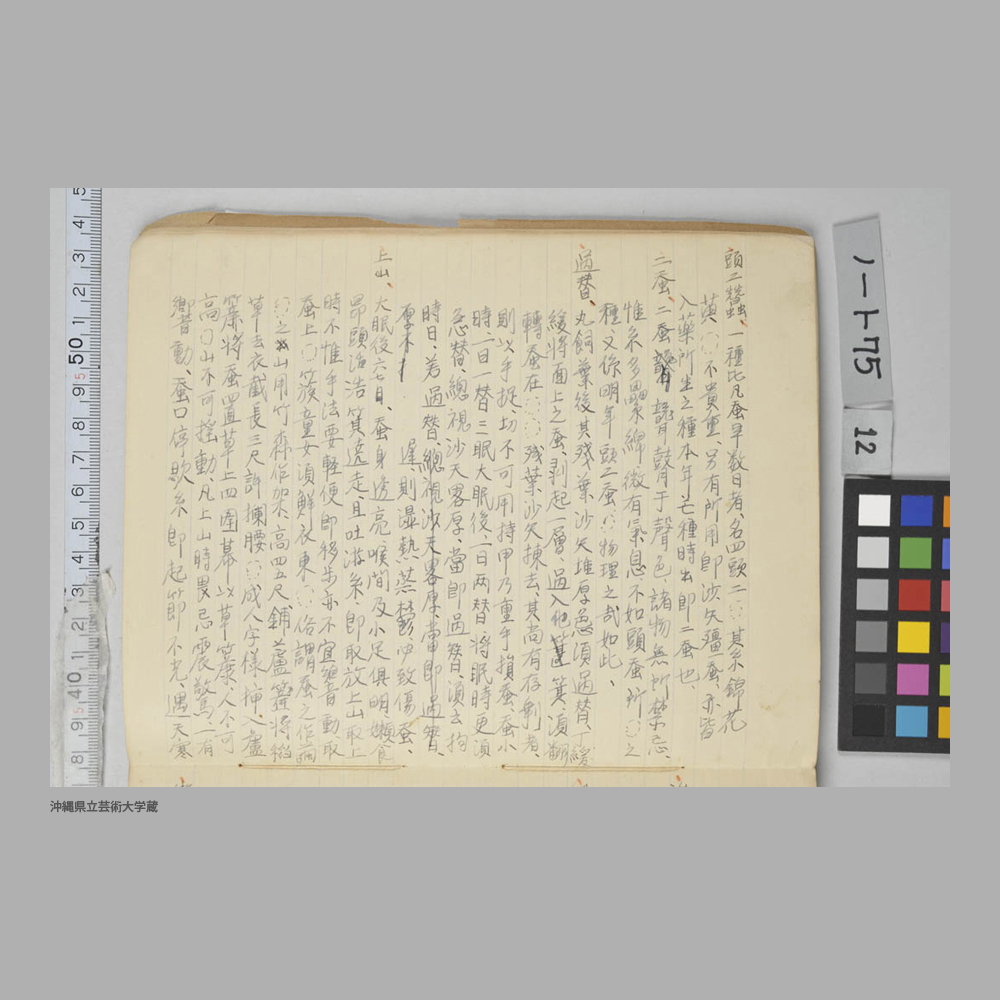 頭二蠶、一種比凡蚕早数日者、名四頭二〇〇其糸錦花
黄〇〇不貴重、另有所用即淡矢殭蚕、亦皆
入藥所生之種本年亡種時出即二蚕也、
二蚕、二蚕聾瞽鼓于聲色、諸物無所禁忌、
惟糸多纍綿微有氣息不如頭蚕所〇〇之
種又係明年頭蚕〇〇物理之哉如此、
過替、丸飼葉後其残葉沙矢堆厚急須過替、丁緩
緩將面上之蚕、剥起一層、過入他筐箕、須翻
轉蚕在〇〇〇残葉沙矢揀去、其尚有存剰者、
則以手捉、切不可用持甲乃重手損蚕、蚕小
時一日一替三眠大眠後、一日两替將眠時更須
急替、總視沙矢畧厚、當即過替、須去拘
時日、若過替、總視沙矢畧厚、當即過替、
厚木 遅則濕熱蒸鬱、必致傷蚕、
上山、大眠後六七日、蚕身透亮喉間及小足俱明、嬾食
昂頭沿箕遶走、且吐游糸、即取放上山取上
時不惟手法要軽便即移歩亦不宜響動取
蚕上〇〇簇童女須鮮衣東〇〇俗謂蚕之作繭
〇〇之山用竹作架、高四五尺、鋪蘆簾將稻
草去衣截長三尺許揀腰〇〇成八字様挿入蘆
簾將蚕置草上四圍幕以草簾、人不可
高〇山不可搖動、凡上山時畏忌震驚一有
響動、蚕口停歇糸即起節不光、遇天寒
ノート75
12
沖縄県立芸術大学蔵